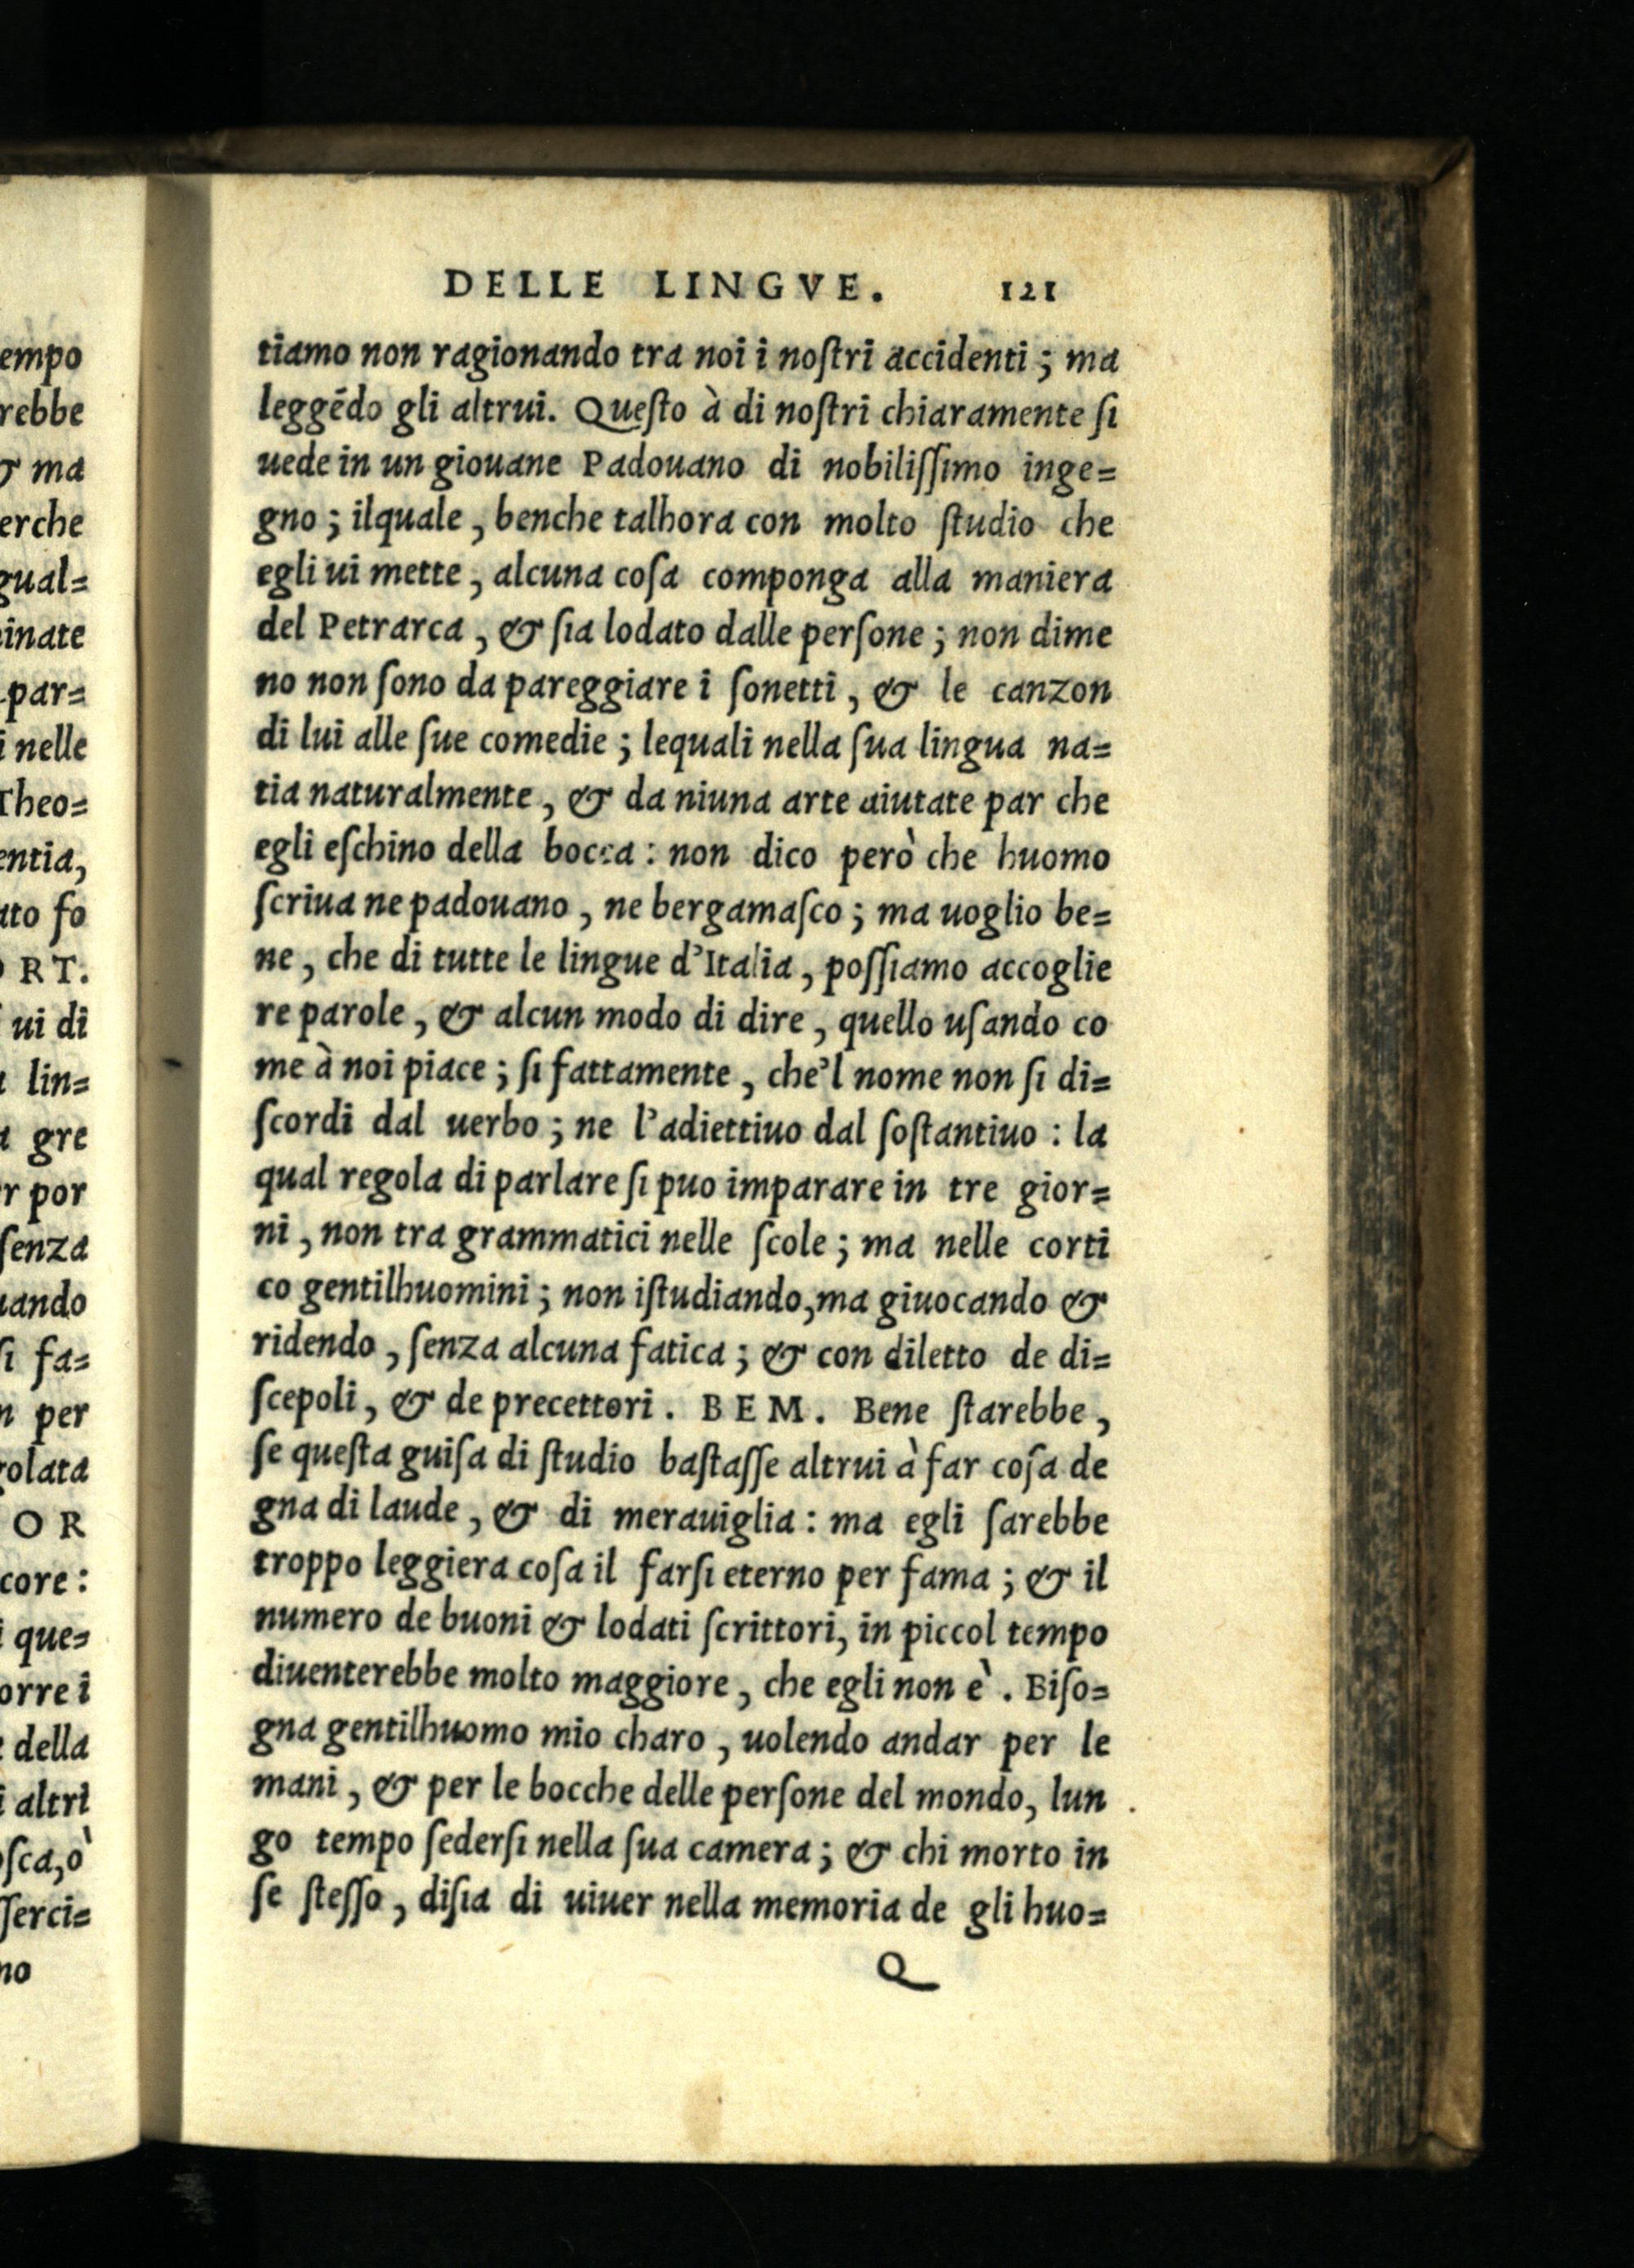 DELLE LINGVE. 121
tiamo non ragionando tra noi i noſtri accidenti; ma
leggẽdo gli altrui. Queſto à di noſtri chiaramente ſi
uede in un giouane Padouano di nobiliſſimo inge=
gno; ilquale, benche talhora con molto ſtudio che
egli ui mette, alcuna coſa componga alla maniera
del Petrarca, & ſia lodato dalle perſone; non dime
no non ſono da pareggiare i ſonetti, & le canzon
di lui alle ſue comedie; lequali nella ſua lingua na=
tia naturalmente, & da niuna arte aiutate par che
egli eſchino della bocca: non dico però che huomo
ſcriua ne padouano, ne bergamaſco; ma uoglio be=
ne, che di tutte le lingue d'Italia, poſſiamo accoglie
re parole, & alcun modo di dire, quello uſando co
me à noi piace; ſi fattamente, che'l nome non ſi di=
ſcordi dal uerbo; ne l'adiettiuo dal ſoſtantiuo: la
qual regola di parlare ſi puo imparare in tre gior=
ni, non tra grammatici nelle ſcole; ma nelle corti
co gentilhuomini; non iſtudiando, ma giuocando &
ridendo, ſenza alcuna fatica; & con diletto de di=
ſcepoli, & de precettori. BEM. Bene ſtarebbe,
ſe queſta guiſa di ſtudio baſtaſſe altrui à far coſa de
gna di laude, & di merauiglia: ma egli ſarebbe
troppo leggiera coſa il farſi eterno per fama; & il
numero de buoni & lodati ſcrittori, in piccol tempo
diuenterebbe molto maggiore, che egli non è. Biſo=
gna gentilhuomo mio charo, uolendo andar per le
mani, & per le bocche delle perſone del mondo, lun
go tempo ſederſi nella ſua camera; & chi morto in
ſe ſteſſo, diſia di uiuer nella memoria de gli huo=
Q